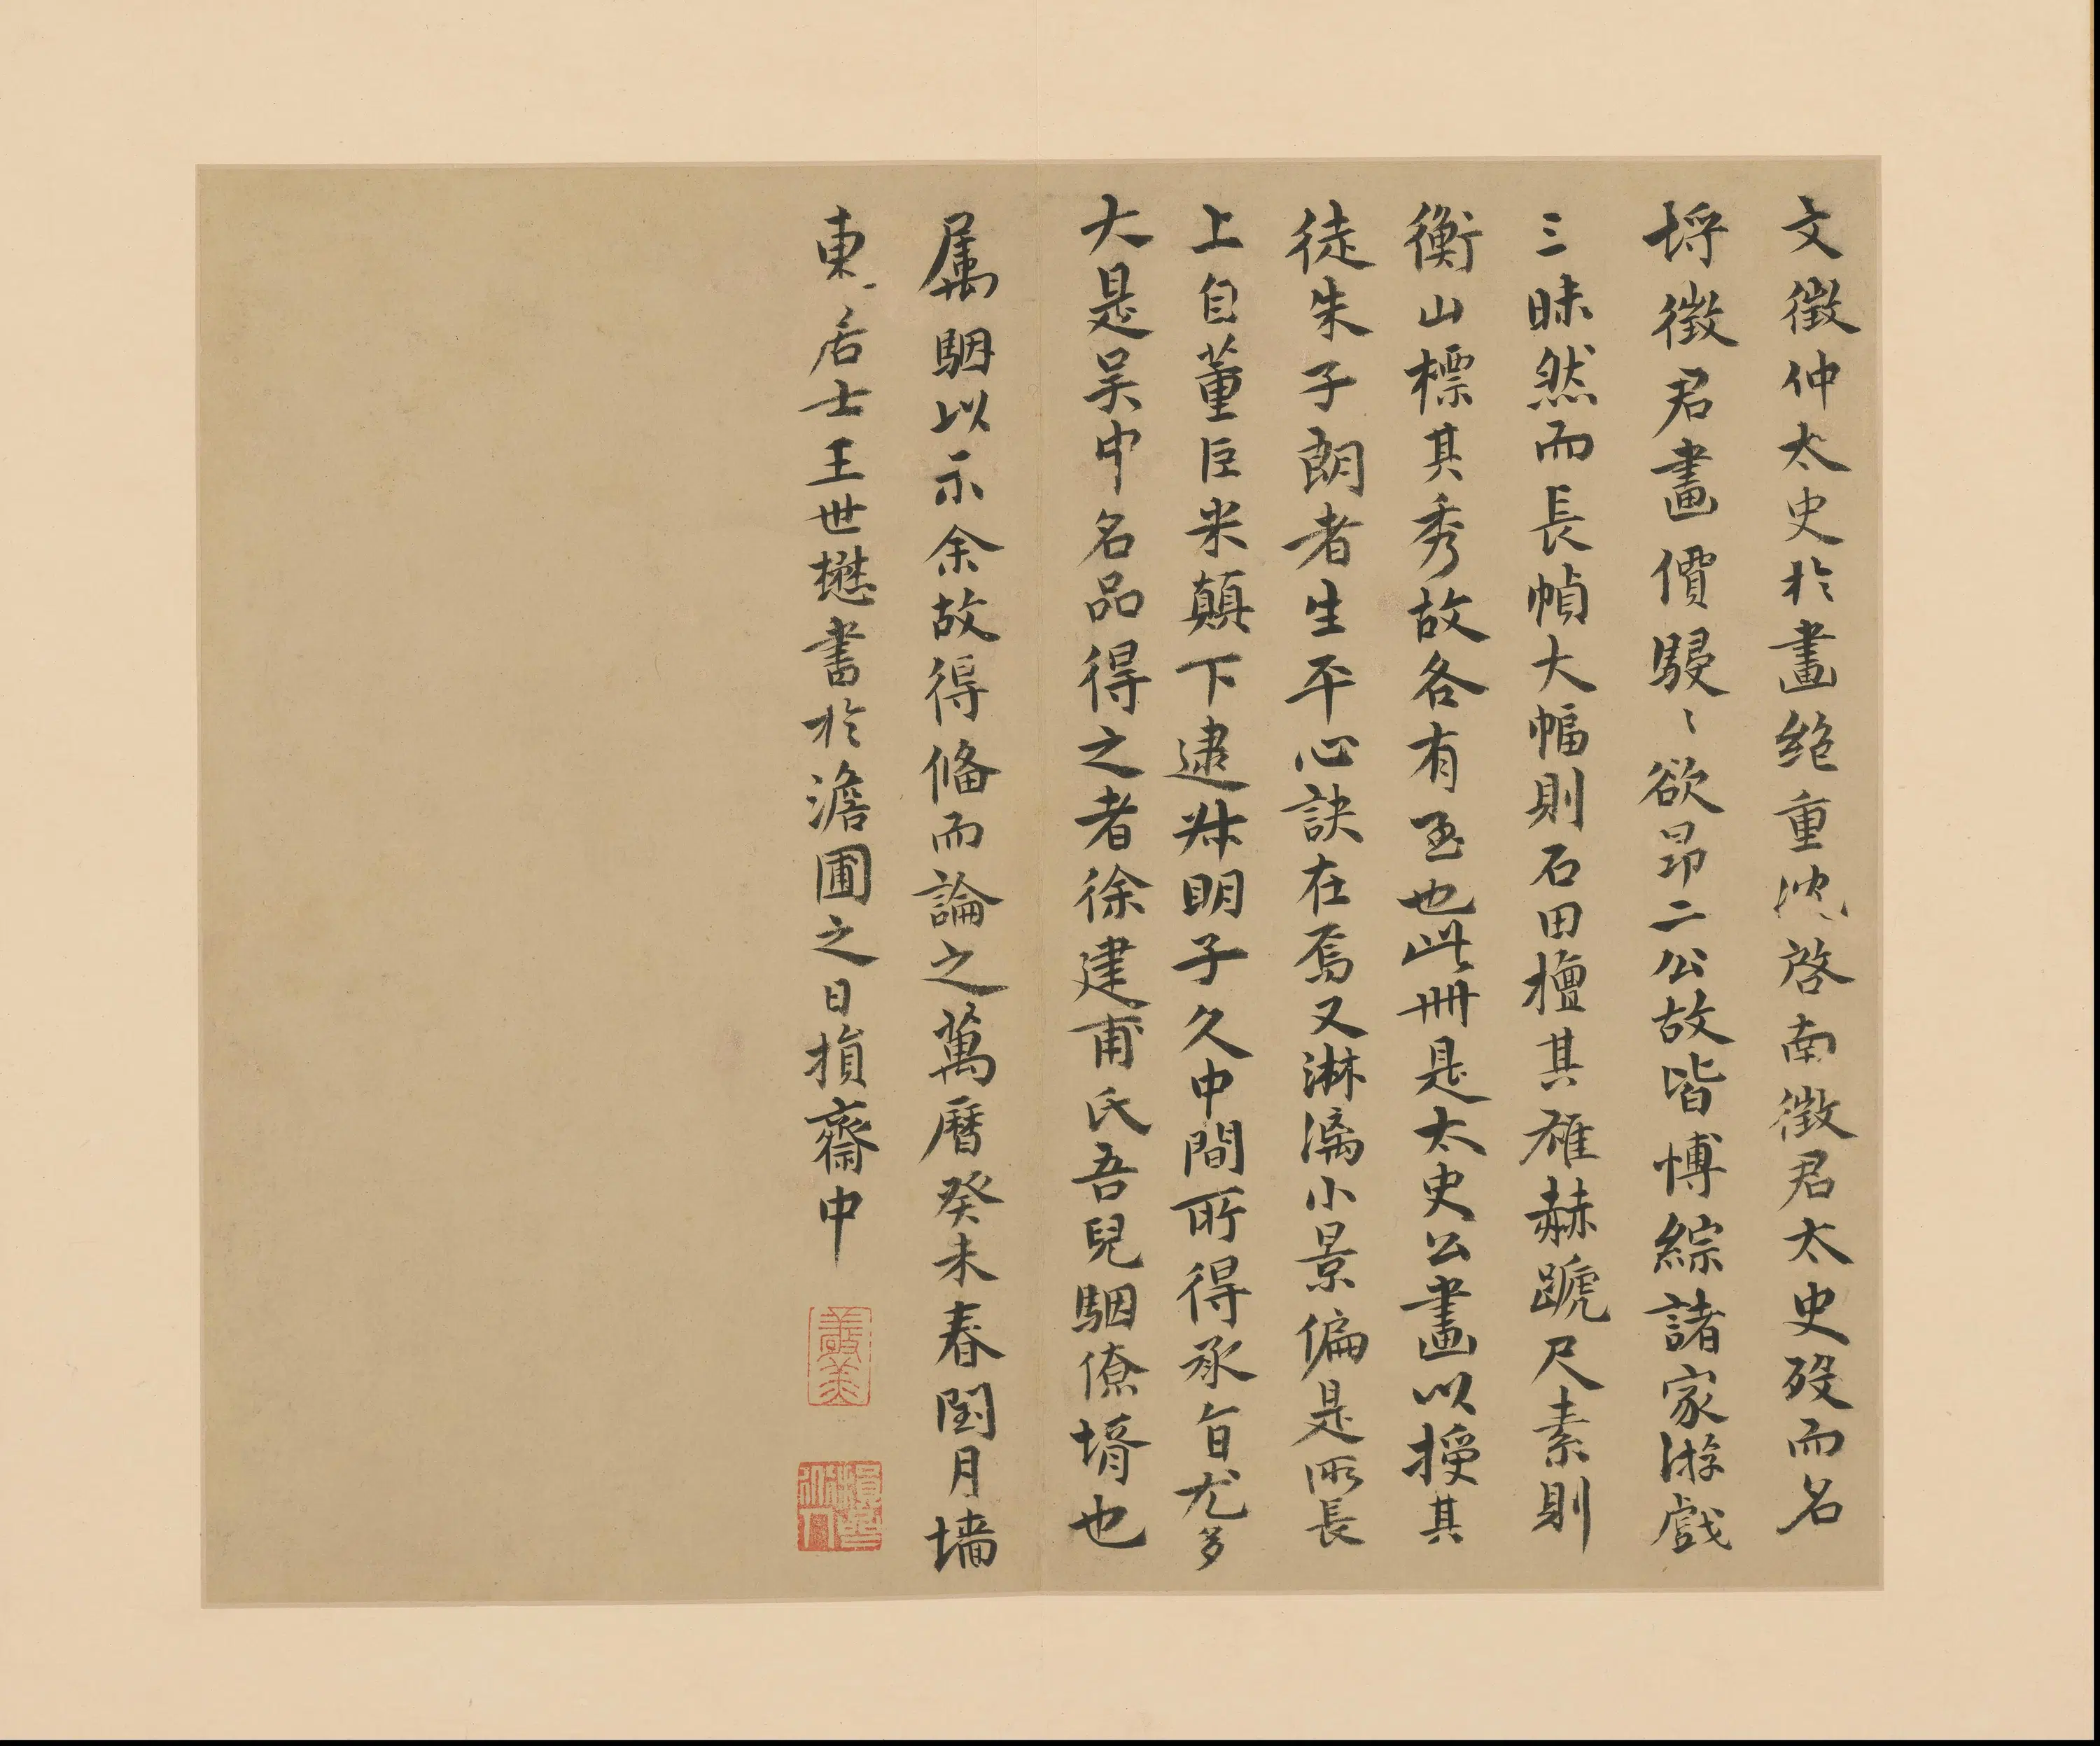 文徵仲太史於畫絕重沈啓南徵君太史歿而名
埒徵君畫價駸〻欲昂二公故皆博綜諸家游戲
三昧然而長幀大幅則石田擅其雄赫蹏尺素則
衡山標其秀故各有至也此冊是太史公畫以授其
徒朱子朗者生平心訣在焉又淋漓小景偏是所長
上自董巨米顛下逮叔明子久中間所得承旨尤多
大是吳中名品得之者徐建甫氏吾兒駰僚壻也
属駰以示余故得俻而論之萬曆癸未春閏月墻
東居士王世懋書於澹圃之日損齋中
敬美
損齋